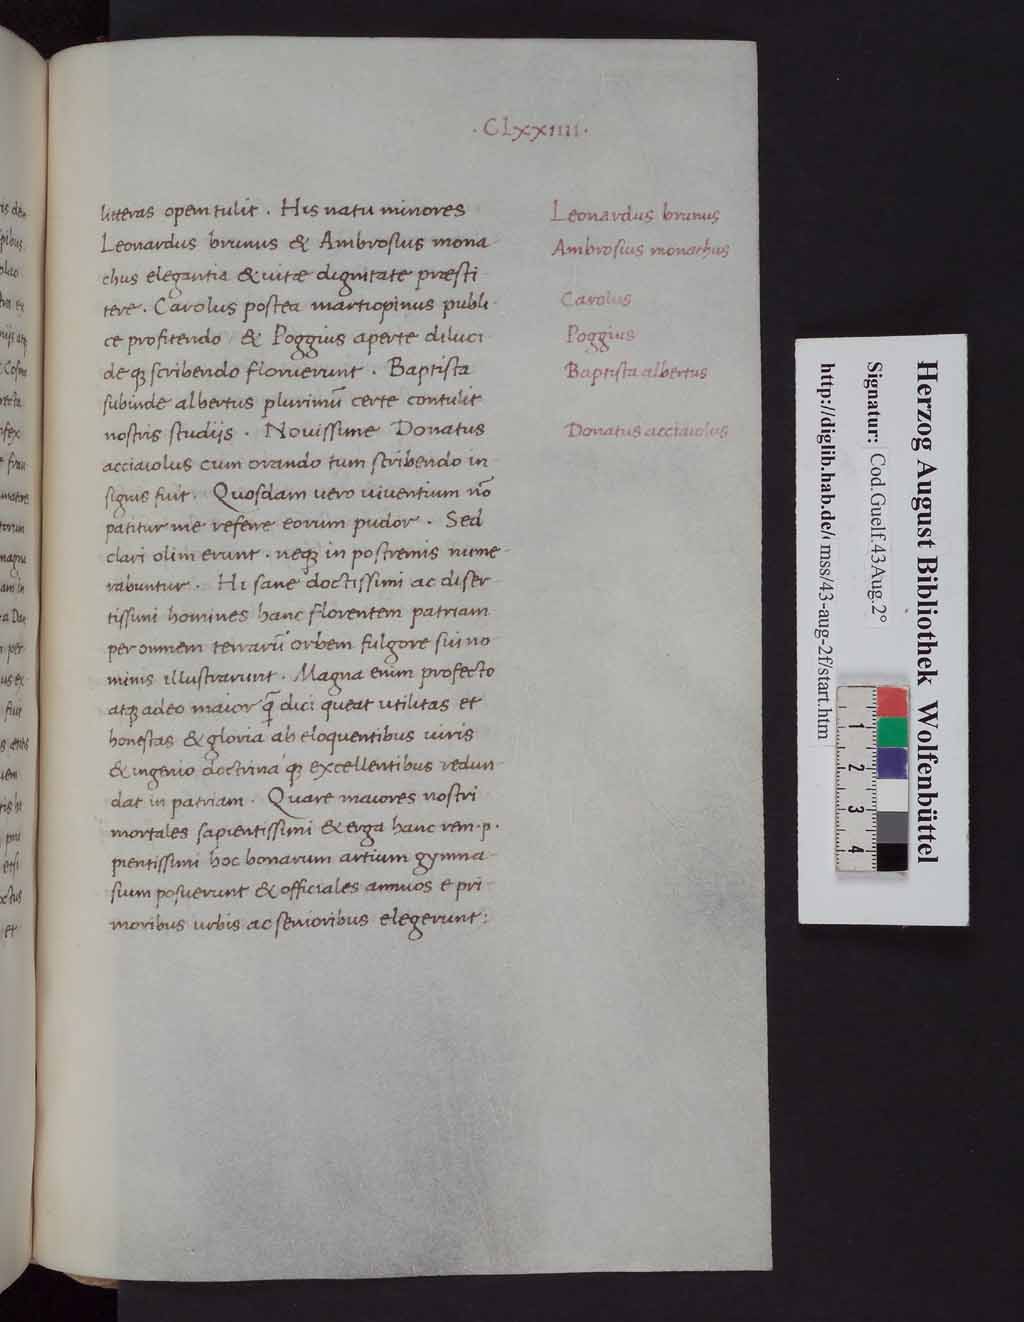 · CLxxiiii ·
litteras opem tulit . His natu minores
Leonardus brunus & Ambrosius mona-
chus elegantia & uitæ dignitate præsti
tere . Carolus postea martiopinus publi-
ce profitendo / & Poggius aperte diluci-
deqꝫ scribendo floruerunt . Baptista
subinde albertus plurimū certe contulit
nostris studijs . Nouissime Donatus
acciaiolus cum orando tum scribendo in-
signis fuit . Quosdam uero uiuentium nō
patitur me referre eorum pudor . Sed
clari olim erunt . neqꝫ in postremis nume-
rabuntur . Hi sane doctissimi ac diser-
tissimi homines hanc florentem patriam
per omnem terrarū orbem fulgore sui no
minis illustrarunt . Magna enim profecto
atqꝫ adeo maior q̄ dici queat utilitas et
honestas & gloria ab eloquentibus uiris
& ingenio doctrina qꝫ excellentibus redun-
dat in patriam . Quare maiores nostri
mortales sapientissimi & erga hanc rem·p·
pientissimi hoc bonarum artium gymna-
sium posuerunt & officiales annuos e pri-
moribus urbis ac senioribus elegerunt :
Leonardus brunus
Ambrosius monachus
Carolus
Poggius
Baptista albertus
Donatus acciaiolus
Herzog August Bibliothek Wolfenbüttel
Signatur: Cod.Guelf.43 Aug.2°
http://diglib.hab.de/ mss/43-aug-2f/start.htm
1
2
3
4